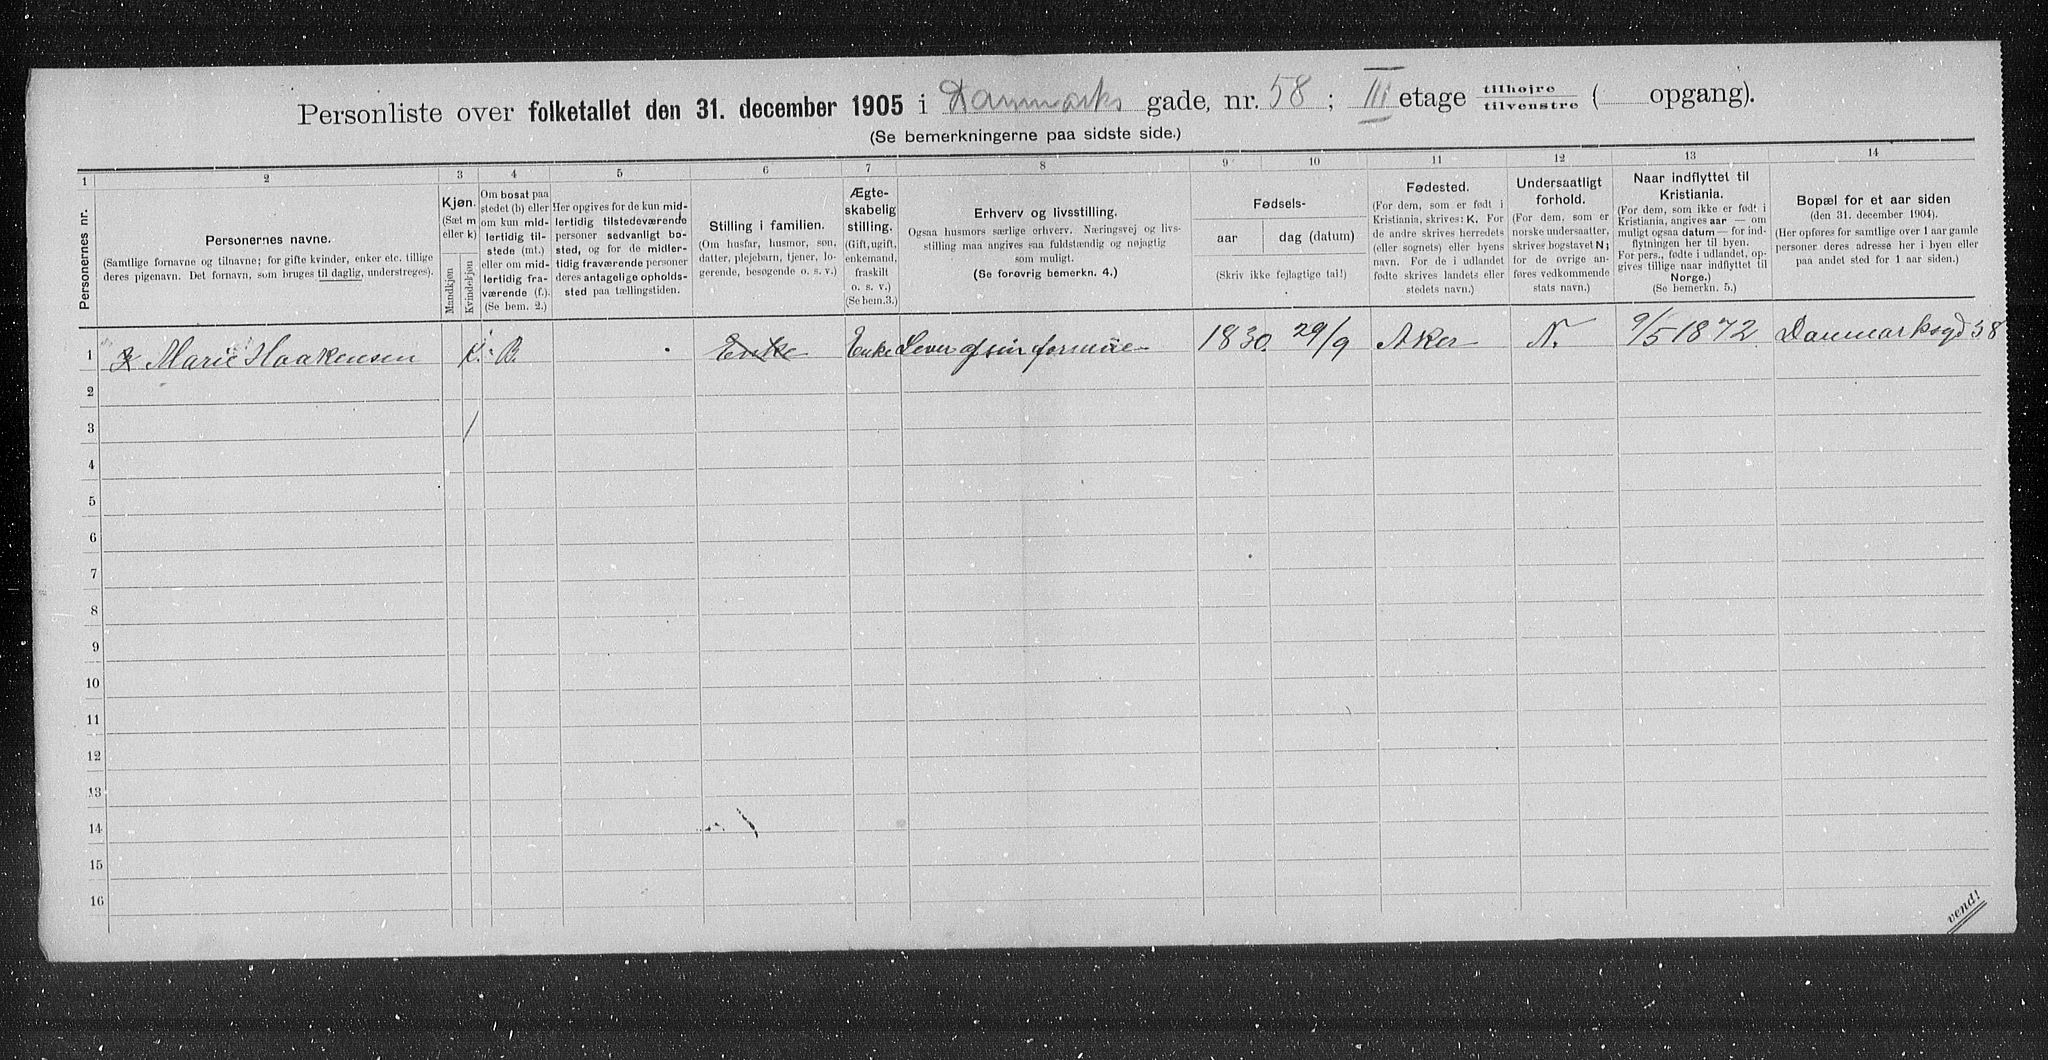 Personliste over folketallet den 31. december 1905 i Danmarks gade, nr. 58 ; III etage tilhøjre tilvenstre ( opgang).
(Se bemerkningerne paa sidste side.)
1 2 3 4 5 6 7 8 9 10 11 12 13 14
Personernes nr.
Personernes navne.
(Samtlige fornavne og tilnavne; for gifte kvinder, enker etc. tillige
deres pigenavn. Det fornavn, som bruges til daglig, understreges).
Kjøn.
(Sæt m
eller k)
Mandkjøn
Kvindekjøn
Om bosat paa
stedet (b) eller
om kun mid-
lertidig til-
stede (mt.)
eller om mid-
lertidig fra-
værende (f.).
(Se bem. 2.)
Her opgives for de kun mid-
lertidig tilstedeværende
personer sedvanligt bo-
sted, og for de midler-
tidig fraværende personer
deres antagelige opholds-
sted paa tællingstiden.
Stilling i familien.
(Om husfar, husmor, søn,
datter, plejebarn, tjener, lo-
gerende, besøgende o. s. v.)
Ægte-
skabelig
stilling.
(Gift, ugift,
enkemand,
fraskilt
o. s. v.)
(Se bem.3.)
Erhverv og livsstilling.
Ogsaa husmors særlige erhverv. Næringsvej og livs-
stilling maa angives saa fuldstændig og nøjagtig
som muligt.
(Se forøvrig bemerkn. 4.)
Fødsels-
aar
dag (datum)
(Skriv ikke fejlagtige tal!)
Fødested.
(For dem, som er født i
Kristiania, skrives: K. For
de andre skrives herredets
(eller sognets) eller byens
navn. For de i udlandet
fødte skrives landets eller
stedets navn.)
Undersaatligt
forhold.
(For dem, som er
norske undersaatter,
skrives bogstavet N;
for de øvrige an-
føres vedkommende
stats navn.)
Naar indflyttet til
Kristiania.
(For dem, som ikke er født i
Kristiania, angives aar — om
muligt ogsaa datum — for ind-
flytningen her til byen.
For pers., fødte i udlandet, op-
gives tillige naar indflyttet til
Norge.)
(Se bemerkn. 5.)
Bopæl for et aar siden
(den 31. december 1904).
(Her opføres for samtlige over 1 aar gamle
personer deres adresse her i byen eller
paa andet sted for 1 aar siden.)
1 Marie Haakensen K. B. Enke Enke Lever af sin formue 1830. 29/9 Aker N. 9/5 1872 Danmarksgd 58
2
3
4
5
6
7
8
9
10
11
12
13
14
15
16
vend!